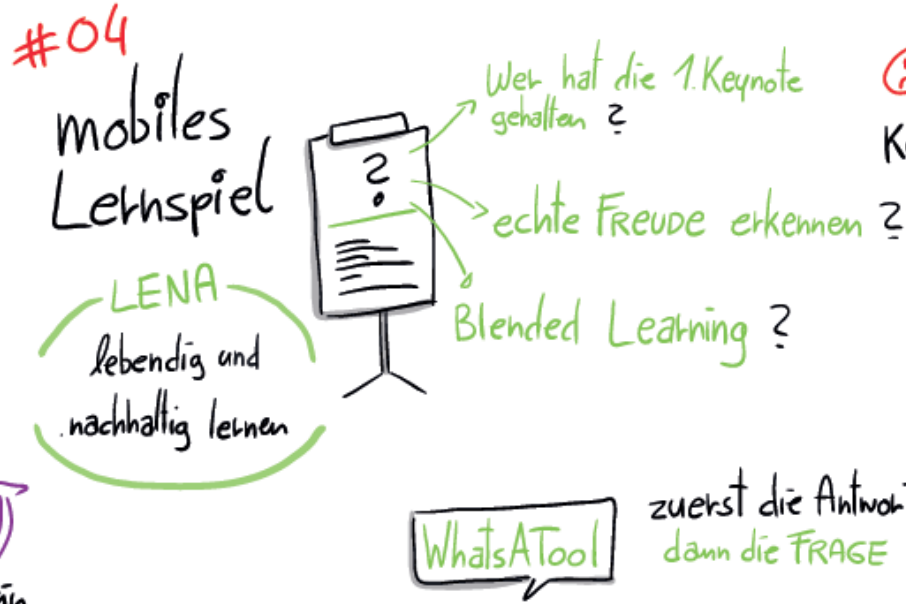 #04
mobiles
Lernspiel
LENA
lebendig und
nachhaltig lernen
?
Wer hat die 1. Keynote
gehalten ?
echte FREUDE erkennen ?
Blended Learning ?
WhatsATool
zuerst die
dann die FRAGE